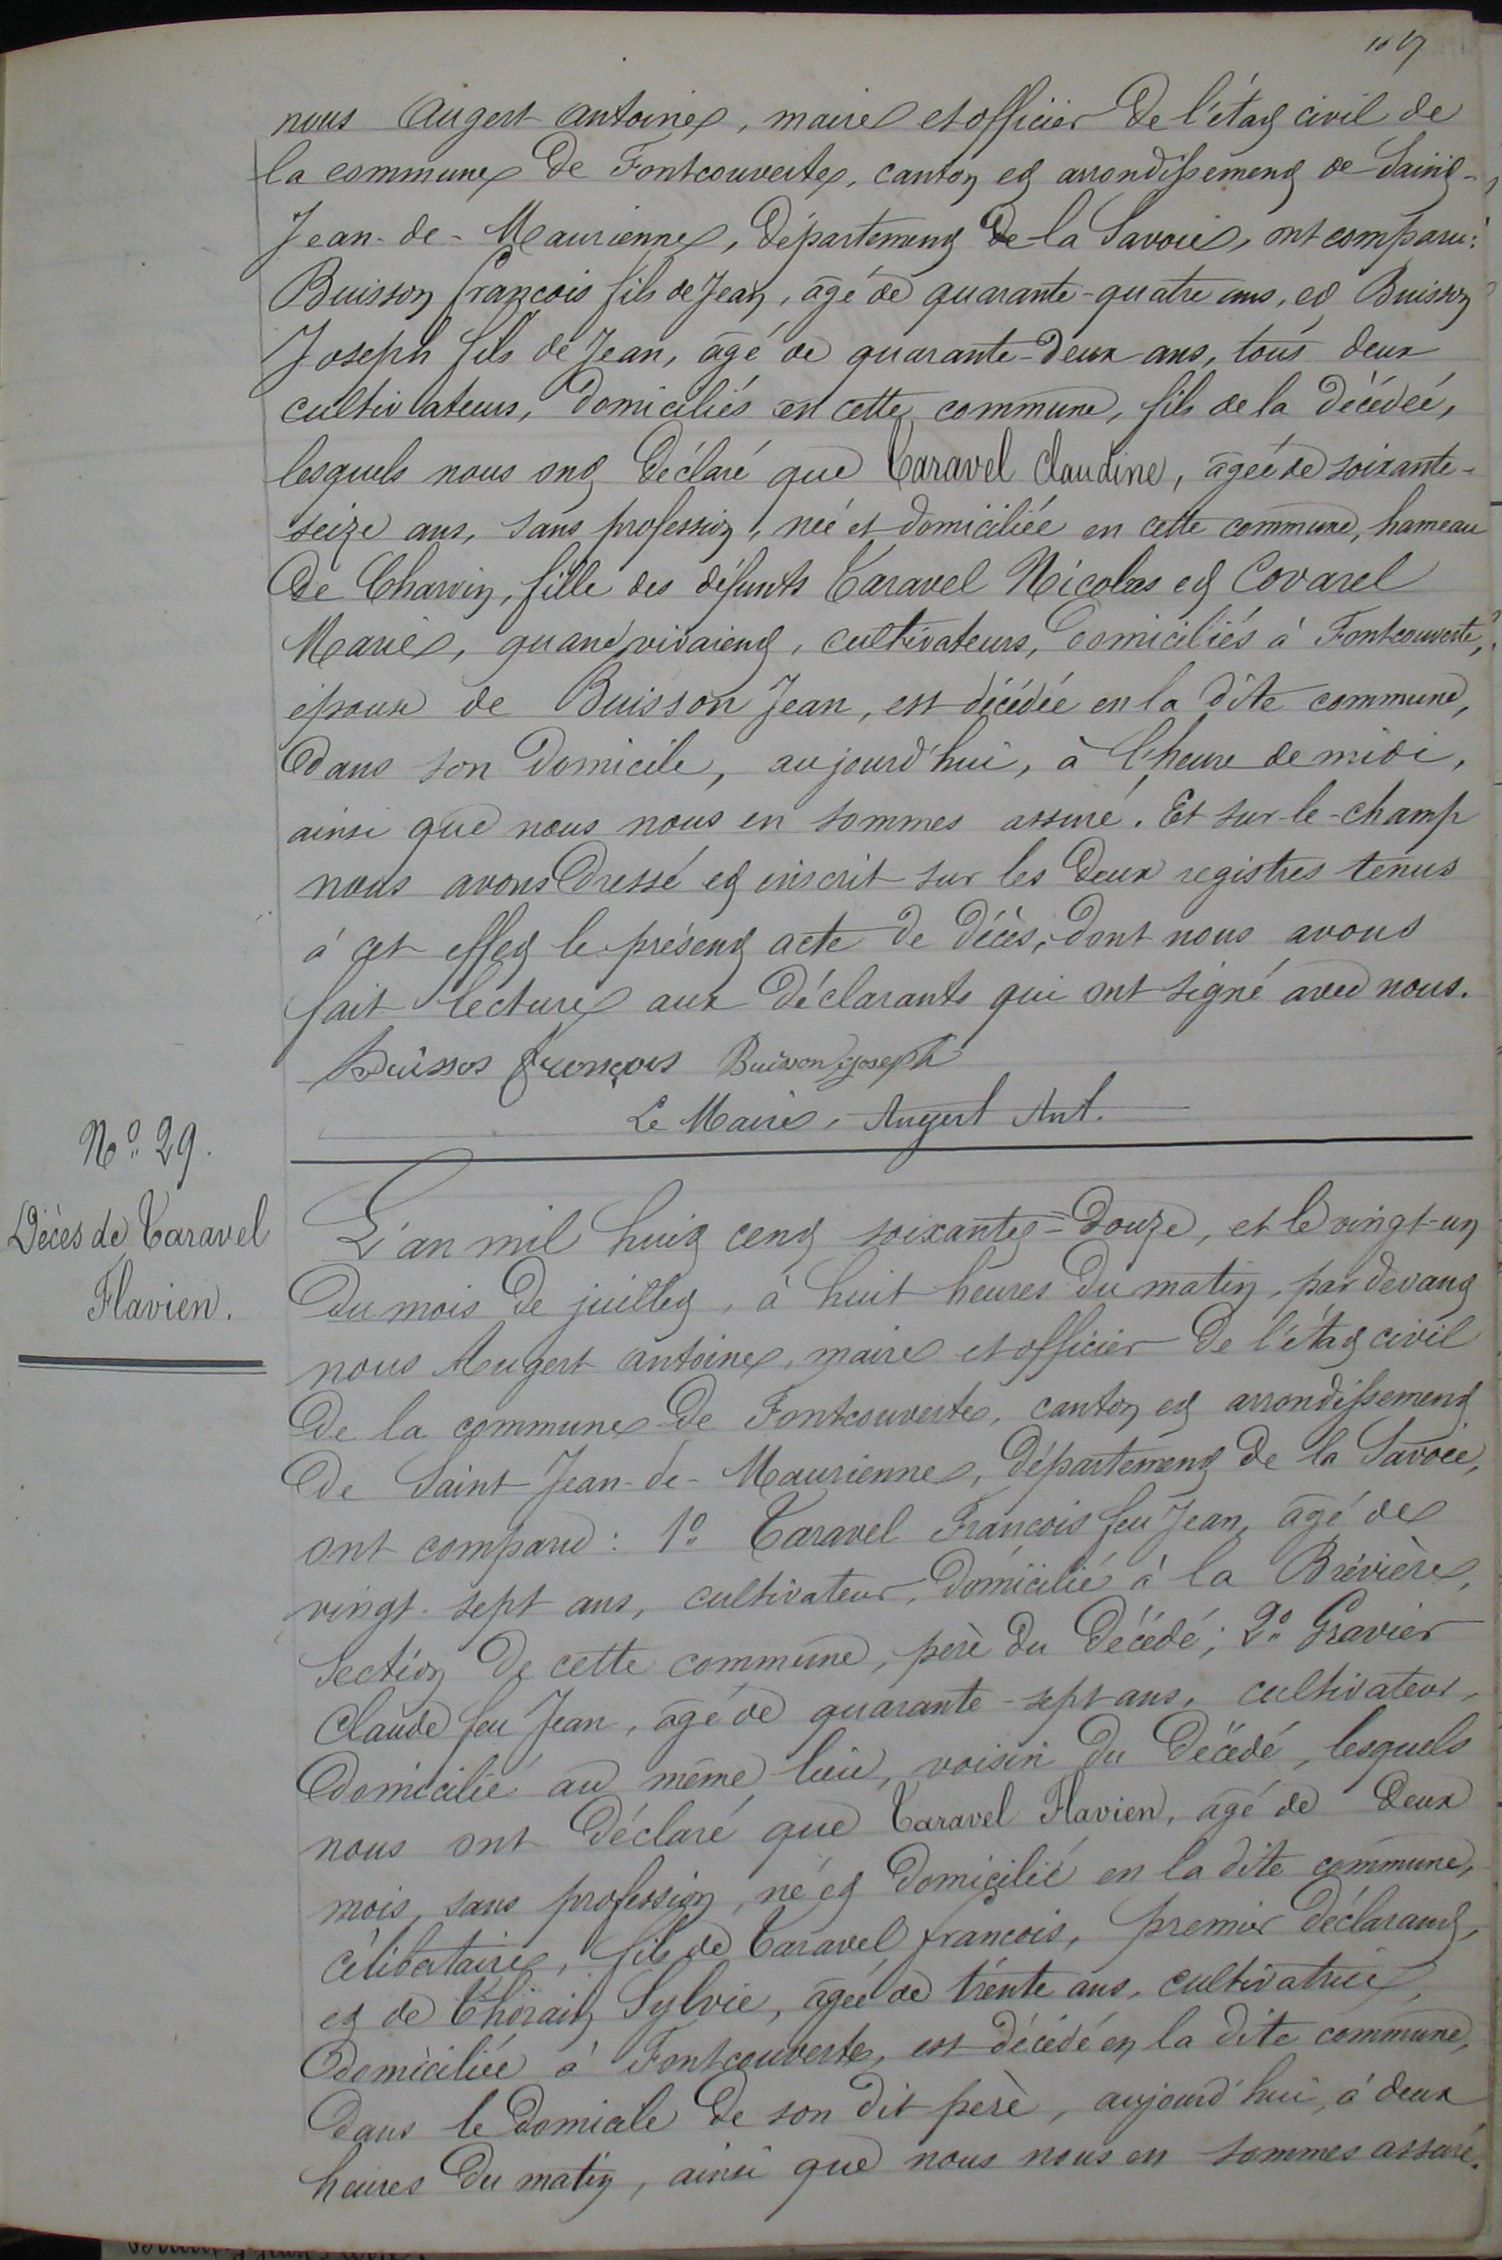 nous Augert Antoine, maire et officier de l'état civil de
la commune de Fontcouverte, canton et arrondissement de Saint-
Jean-de-Maurienne, département de la Savoie, ont comparu:
Buisson françois fils de Jean, âgé de quarante-quatre ans, et Buisson
Joseph fils de Jean, âgé de quarante-deux ans, tous deux
cultivateurs, domiciliés en cette commune, fils de la décédée,
lesquels nous ont déclaré que Taravel Claudine, âgée de soixante-
seize ans, sans profession, née et domiciliée en cette commune, hameau
de Charvin, fille des défunts Taravel Nicolas et Covarel
Marie, quand vivaient, cultivateurs, domiciliés à Fontcouverte,
épouse de Buisson Jean, est décédée en la dite commune,
dans son domicile, aujourd'hui, à l'heure de midi,
ainsi que nous nous en sommes assuré. Et sur-le-champ
nous avons dressé et inscrit sur les deux registres tenus
à cet effet le présent acte de décès, dont nous avons
fait lecture aux déclarants qui ont signé avec nous.
Buisson François Buisson Joseph
Le Maire, Augert Ant.
N° 29.
Décès de Taravel
Flavien.
L'an mil huit cent soixante-douze, et le vingt-un
du mois de juillet, à huit heures du matin, par devant
nous Augert Antoine, maire et officier de l'état civil
de la commune de Fontcouverte, canton et arrondissement
de Saint-Jean-de-Maurienne, département de la Savoie,
ont comparu: 1° Taravel François feu Jean, âgé de
vingt-sept ans, cultivateur, domicilié à la Brévière,
section de cette commune, père du décédé; 2° Gravier
Claude feu Jean, âgé de quarante-sept ans, cultivateur,
domicilié au même lieu, voisin du décédé, lesquels
nous ont déclaré que Taravel Flavien, âgé de deux
mois, sans profession, né et domicilié en la dite commune,
célibataire, fils de Taravel françois, premier déclarant,
et de Thorain Sylvie, âgée de trente ans, cultivatrice,
domiciliée à Fontcouverte, est décédé en la dite commune,
dans le domicile de son dit père, aujourd'hui, à deux
heures du matin, ainsi que nous nous en sommes assuré.